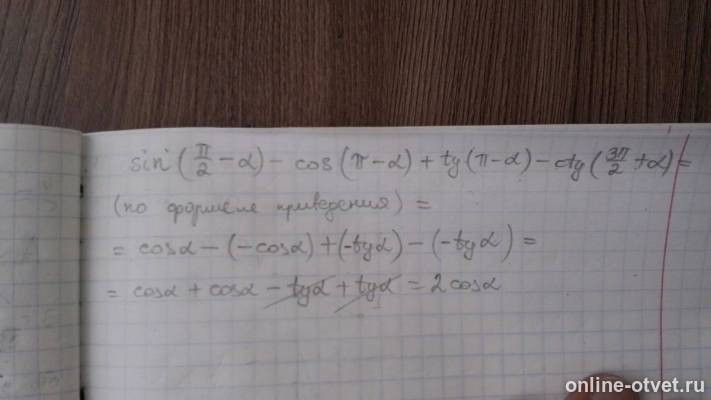 sin(π/2 - α) - cos(π - α) + tg(π - α) - ctg(3π/2 + α) =
(по формуле приведения) =
= cosα - (-cosα) + (-tgα) - (-tgα) =
= cosα + cosα - tgα + tgα = 2cosα
online-otvet.ru